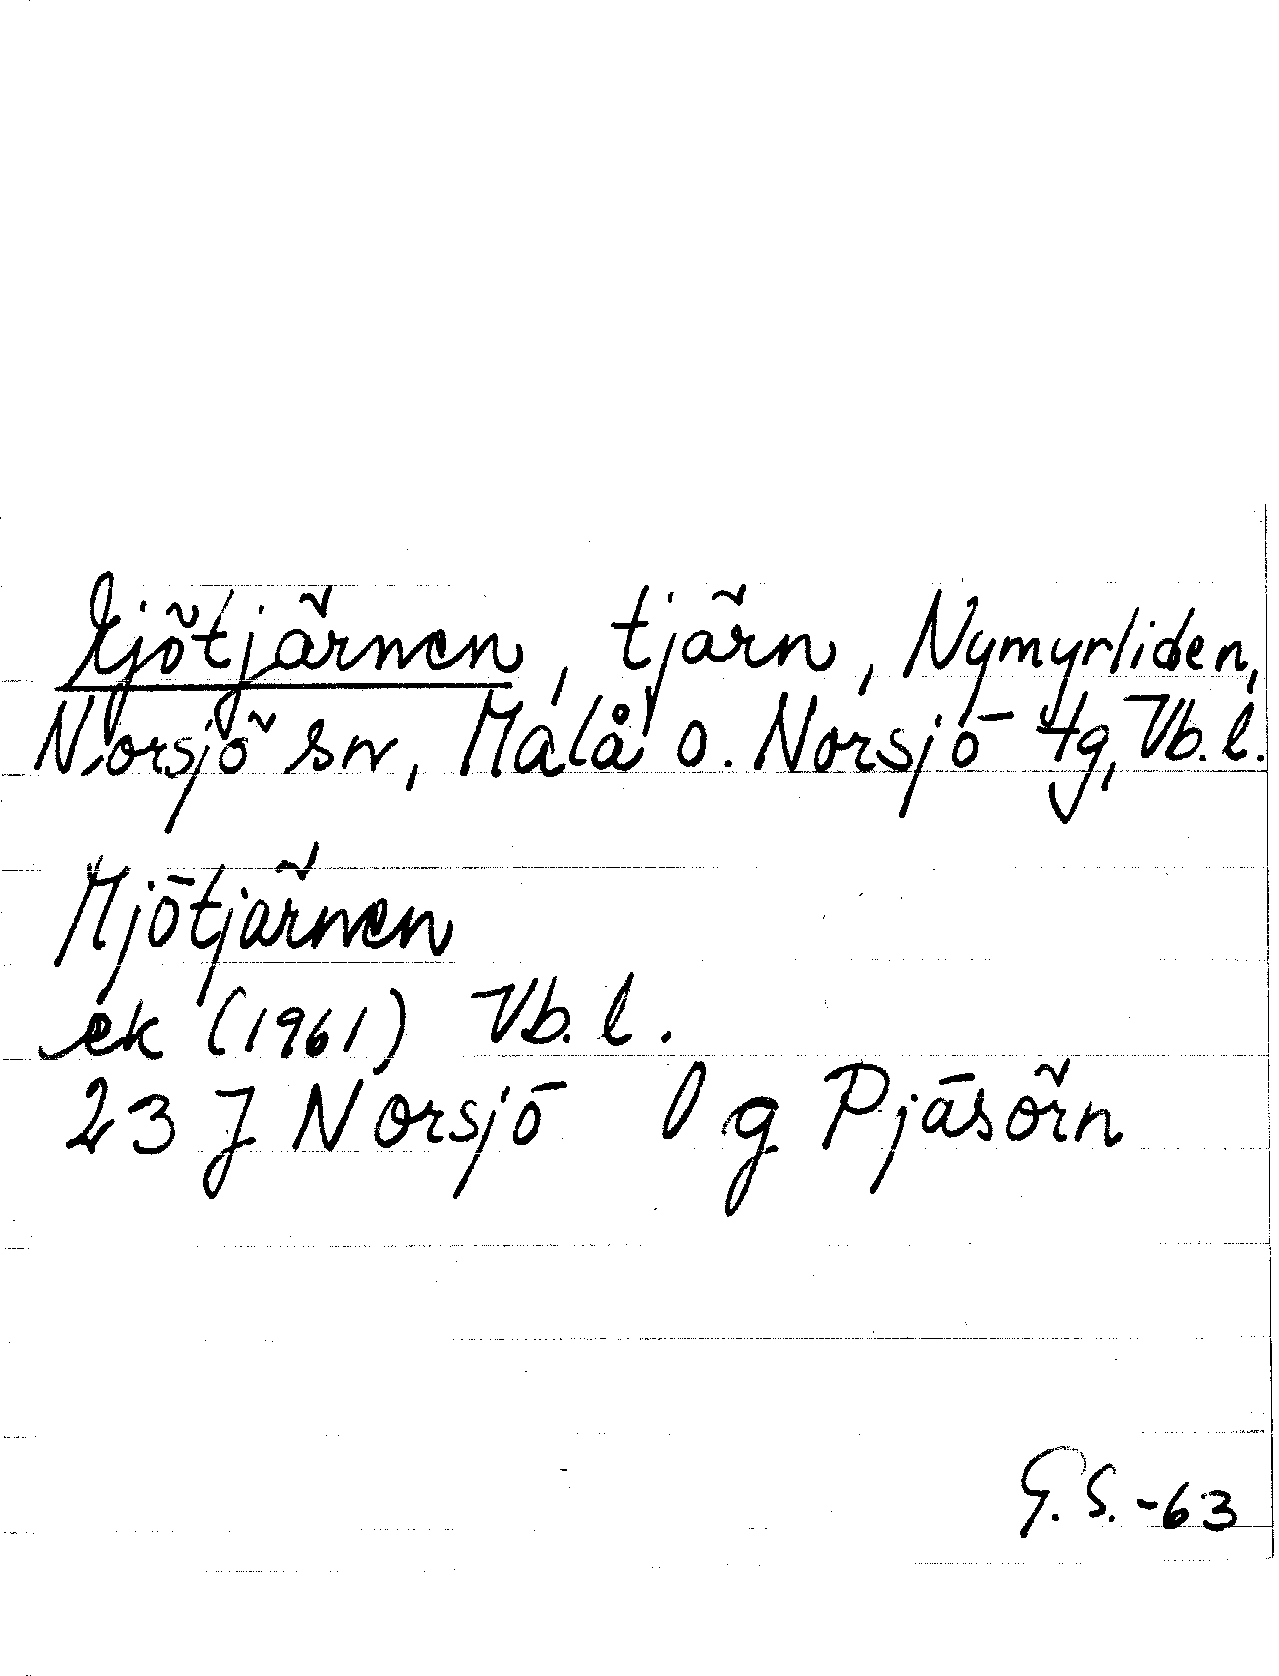 Mjötjärnen, tjärn, Nymyrliden,
Norsjö sn, Malå o. Norsjö tg, Vb. l.
Mjötjärnen
ek (1961) Vb. l.
23 J Norsjö l g Pjäsörn
G. S. -63